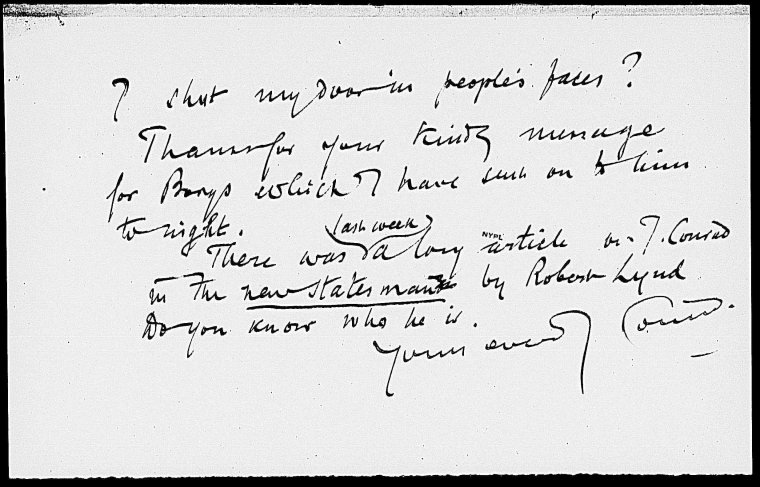 I shut my door in people's faces?
Thanks for your kind message
for Borys which I have sent on to him
to night.
last week
There was a long article on J. Conrad
NYPL
in The new statesman by Robert Lynd
Do you know who he is.
Yours ever J Conrad.